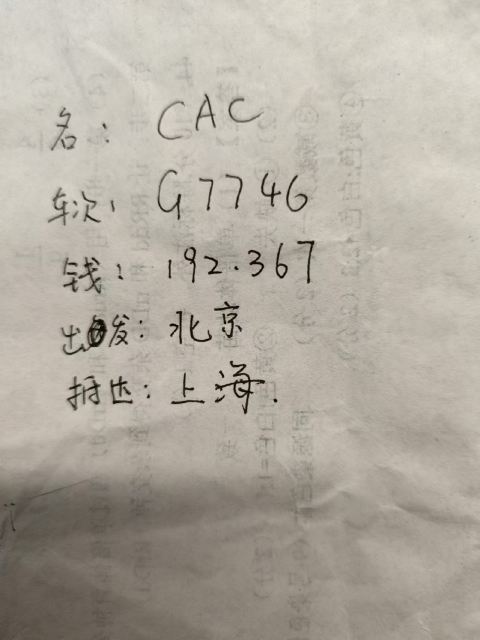 名: CAC
车次: G7746
钱: 192.367
出发: 北京
抵达: 上海.